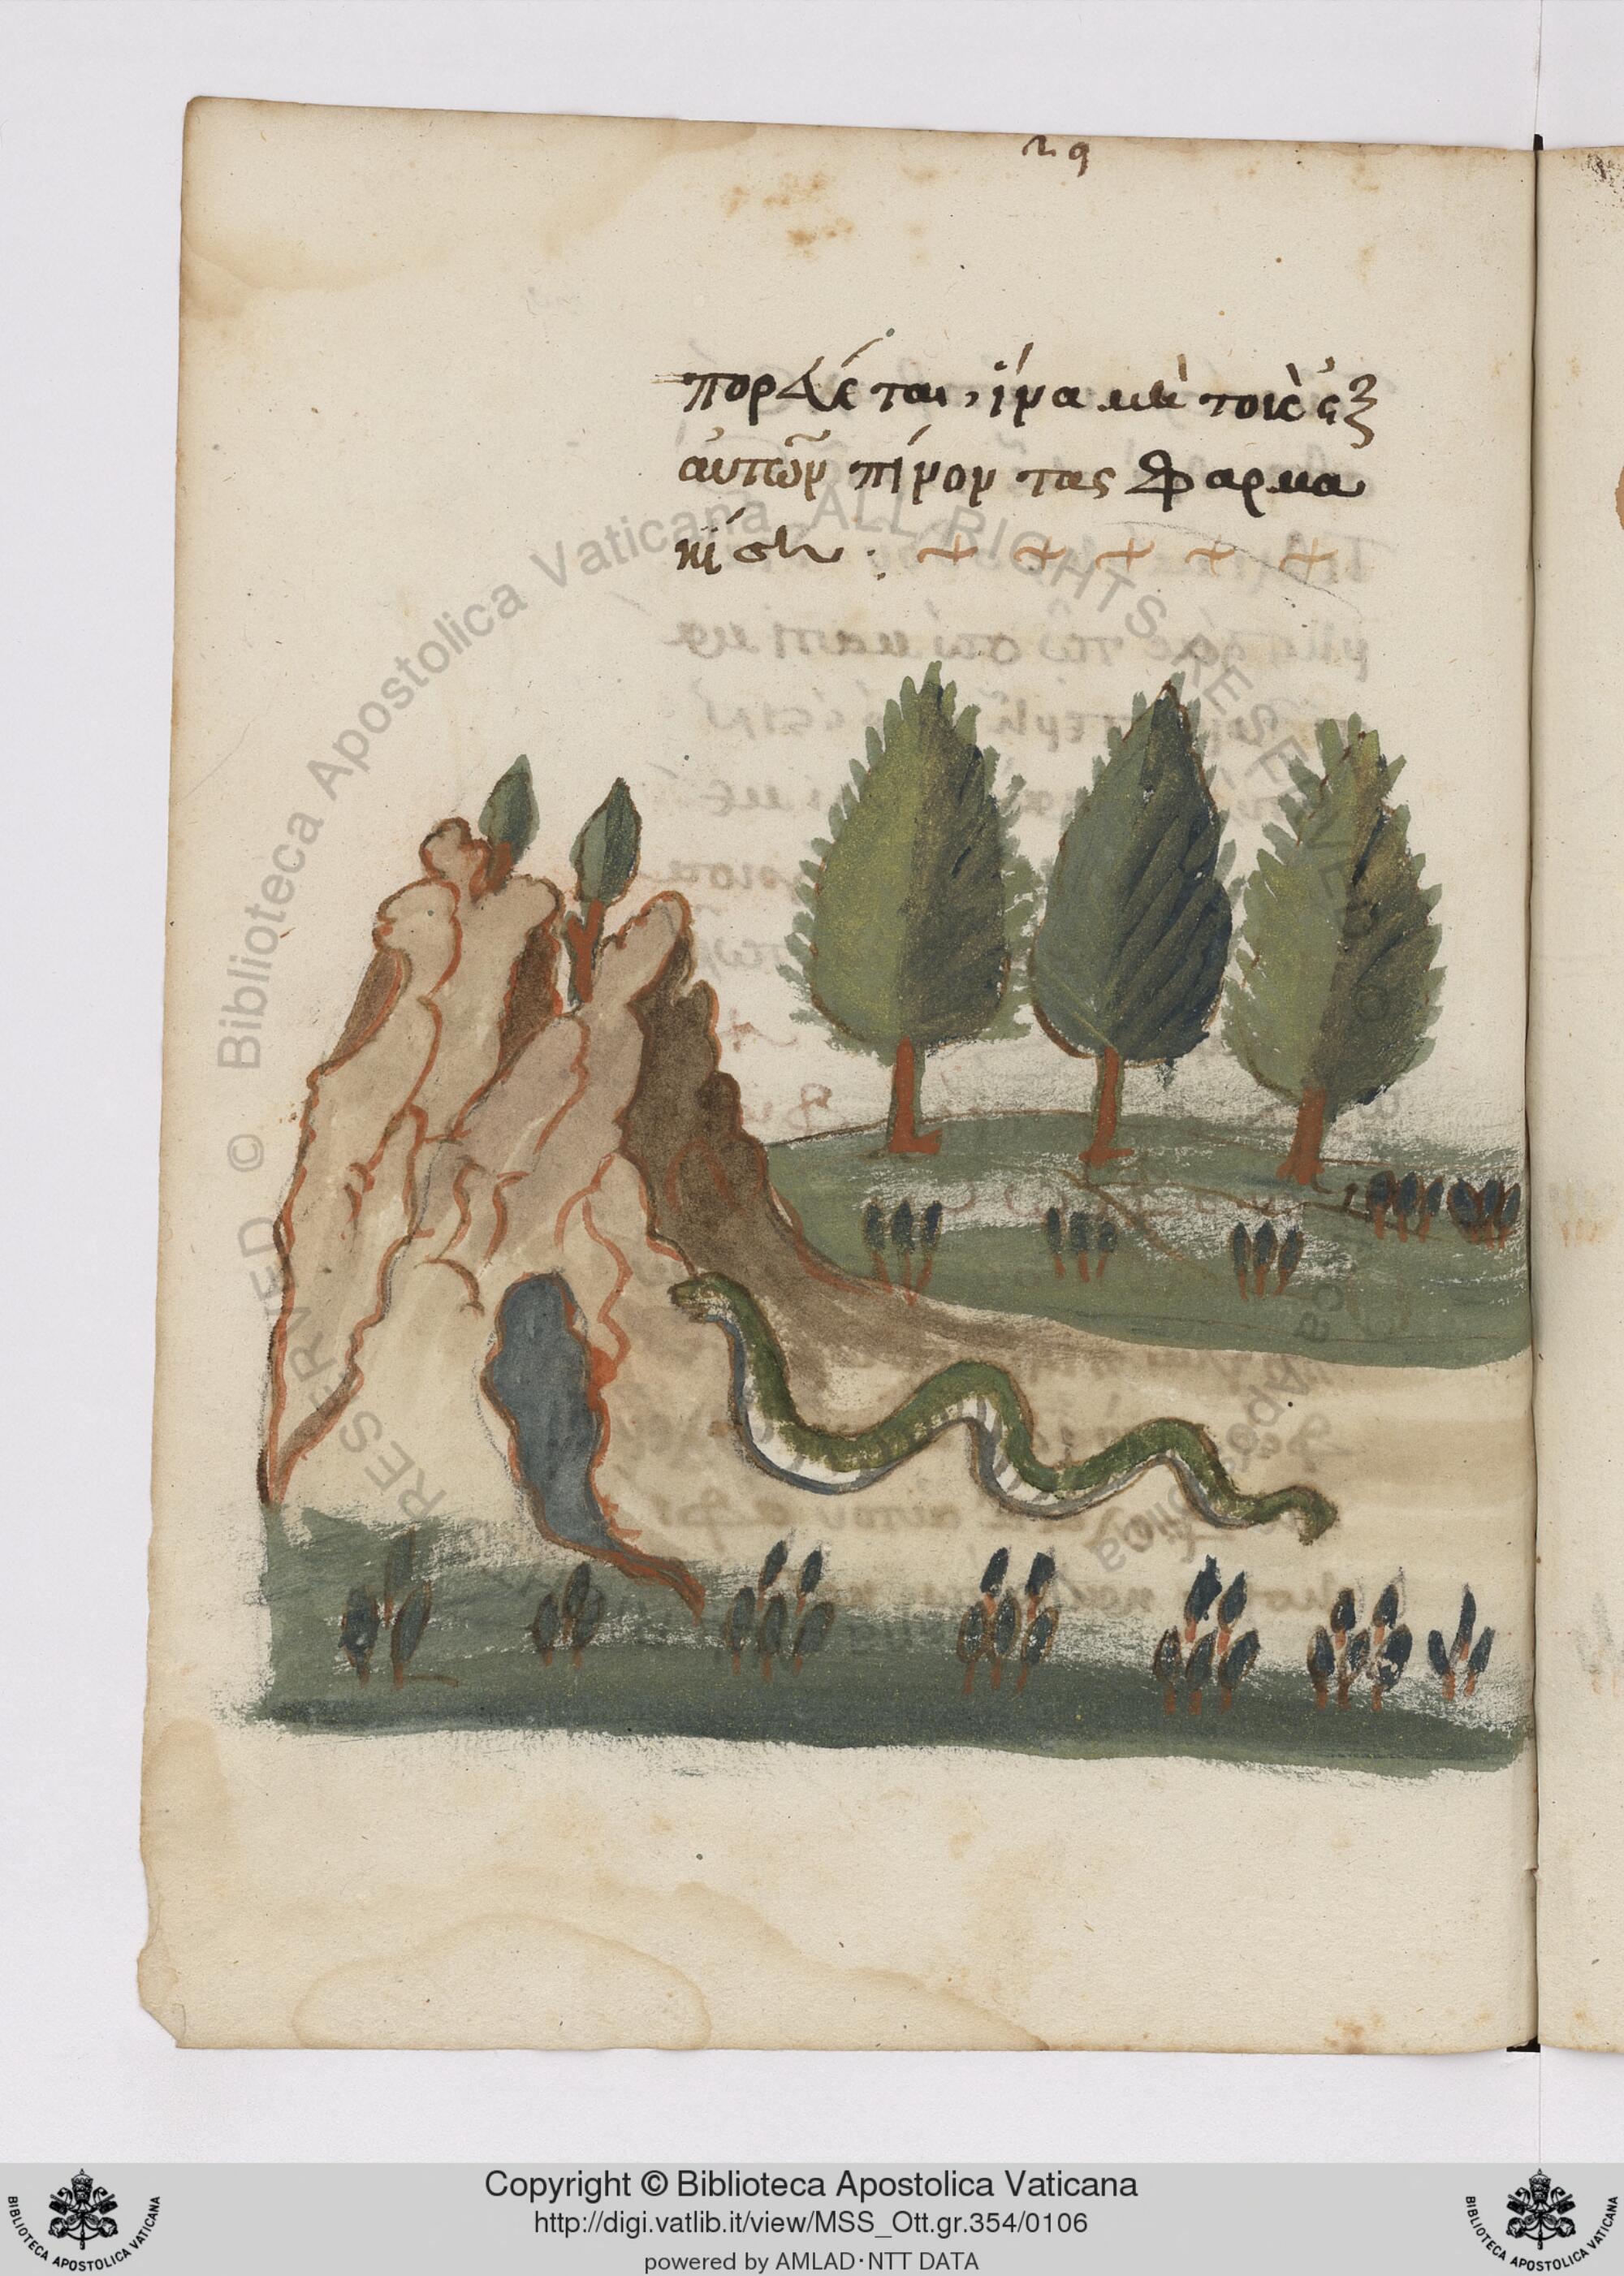 πορεύεται, ἵνα μὴ τοὺς ἐξ
αὐτῶν πίνοντας φαρμα
κίσῃ : + + + + +
Biblioteca Apostolica Vaticana ALL RIGHTS RESERVED ©
Copyright © Biblioteca Apostolica Vaticana
http://digi.vatlib.it/view/MSS_Ott.gr.354/0106
powered by AMLAD·NTT DATA
BIBLIOTECA APOSTOLICA VATICANA
BIBLIOTECA APOSTOLICA VATICANA